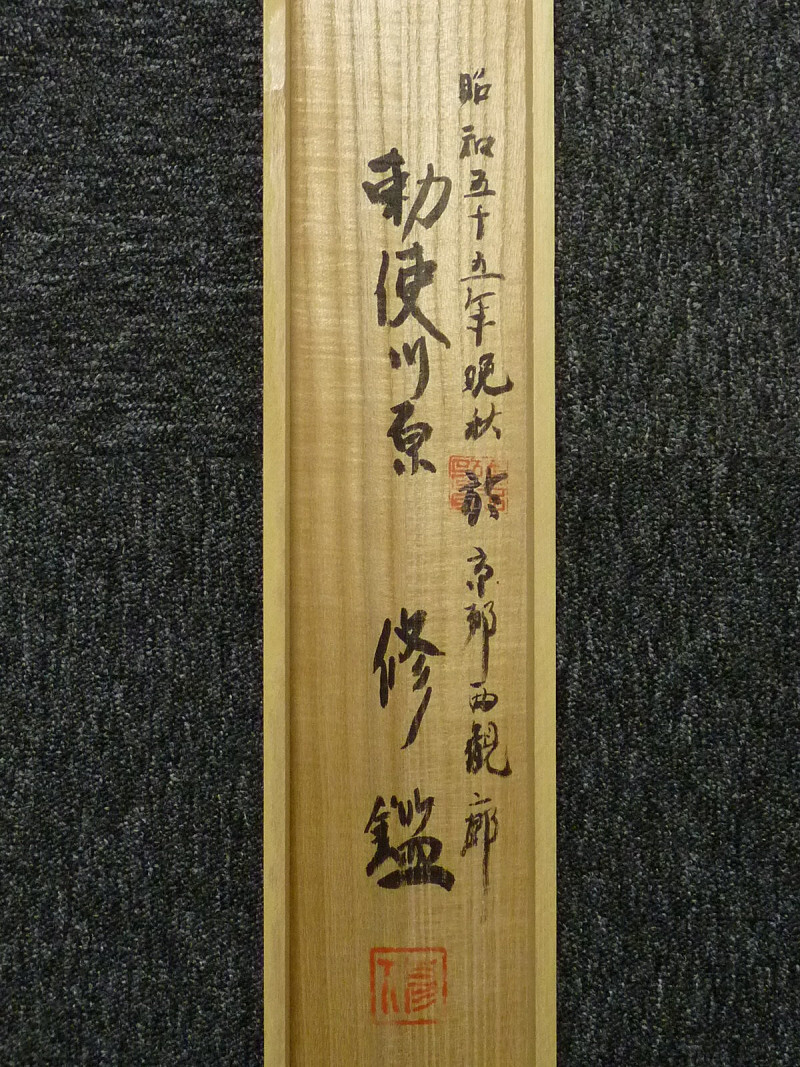 昭和五十五年晩秋 於京都西観廊
勅使川原 修 鑑